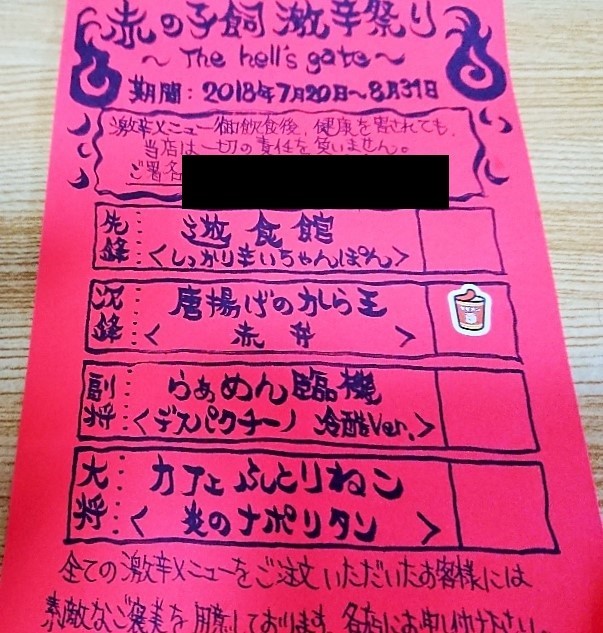 赤の子飼 激辛祭り
~The hell's gate~
期間：2018年7月20日~8月31日
激辛メニュー御飲食後、健康を害されても、
当店は一切の責任を負いません。
ご署名
先鋒
遊食館
<しっかり辛いちゃんぽん>
次鋒
唐揚げのかしら王
< 赤丼 >
副将
らぁめん臨機
<デスパクチー 冷酷Ver.>
大将
カフェ ふとりねこ
< 炎のナポリタン >
全ての激辛メニューをご注文いただいたお客様には
素敵なご褒美を用意しております。各店にお申し付け下さい。